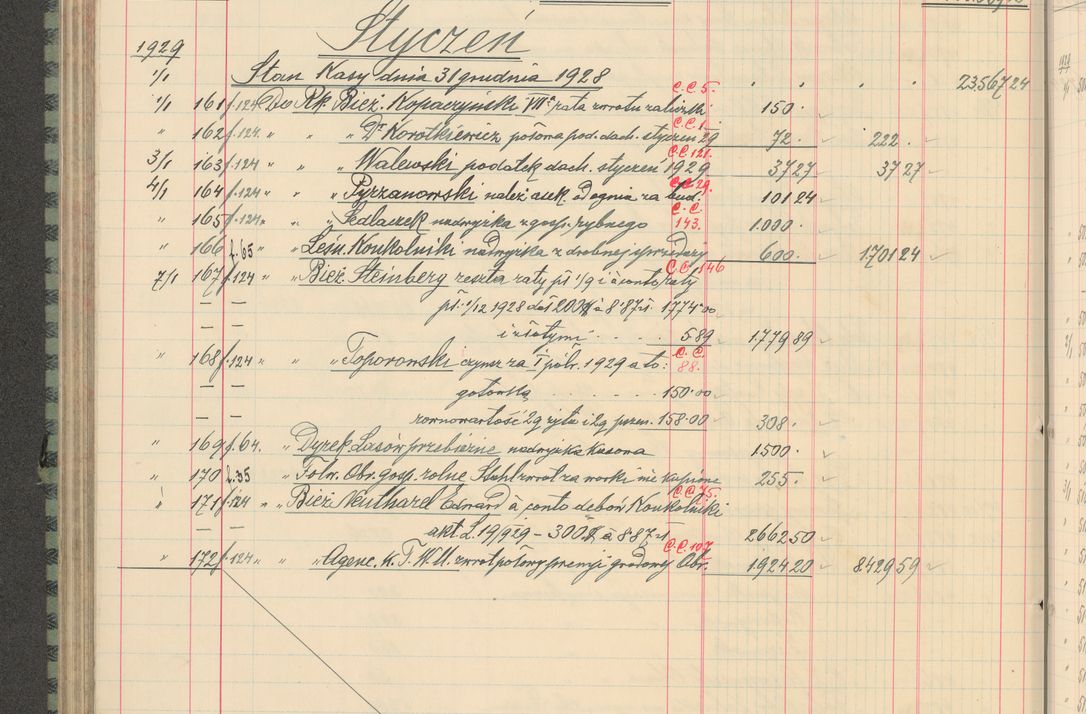 Styczeń
1929
1/1 Stan Kasy dnia 31 grudnia 1928 " " " 23567 24
C.C. 5.
1/1 161 f.124 Do Rk. Bież. Kopaczyński VIII rata zwrotu zaliczki 150 ·
C.C. 1
" 162 f.124 " " " Dr Korotkiewicz połowa pod. doch. styczeń 29 72 · 222 ·
C.C. 121.
3/1 163 f.124 " " " Walewski podatek doch. styczeń 1929 37 27 37 27
C.C. 29.
4/1 164 f.124 " " " Pyrzanowski należ. asek. od ognia za bud. 101 24
C.C.
" 165 f.124 " " " Sedlaczek nadwyżka z gosp. rybnego 143. 1.000 ·
" 166 f.65 " " Leśn. Koukolniki nadwyżka z drobnej sprzedaży 600 · 1.701 24
C.C. 146
7/1 167 f.124 " Bież. Steinberg reszta raty pł 1/9 i à conto raty
— — pł. 1/12 1928 doł 200 $ à 8'87 zł. 1774·00
— — i złotymi . . . . 5 89 1.779 89
" 168 f.124 " " " Toporowski czynsz za I półr. 1929 a to: C.C. 88.
— — gotówką . . . . . . . 150·00
— — równowartość 2 q żyta i 2 q pszen. 158·00 308 ·
" 169 f.64. " Dyrek. Lasów przebieżne nadwyżka kasowa 1.500 ·
" 170 f.35 " Folw. Obr. gosp. rolne Stahl zwrot za worki nie kupione 255 ·
C.C. 75.
" 171 f.124 " " Bież. Neutharel Edward à conto Koukolniki
— — akt L. 19/929 – 300 $ à 8 87 zł 2662 50
C.C. 107
" 172 f.124 " " " Agenc. K. T. W. U. zwrot połowy premji gradowej Obr. 1.924 20 8.429 59